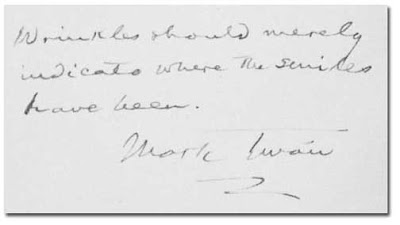 Wrinkles should merely
indicate where the smiles
have been.
Mark Twain